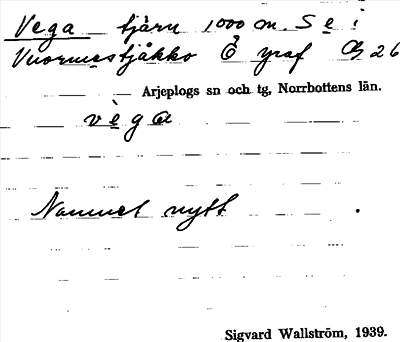 Vega tjärn 1000 m. S e i
Vuormestjåkko Ö graf 26
Arjeplogs sn och tg, Norrbottens län.
vèga
Namnet nytt.
Sigvard Wallström, 1939.